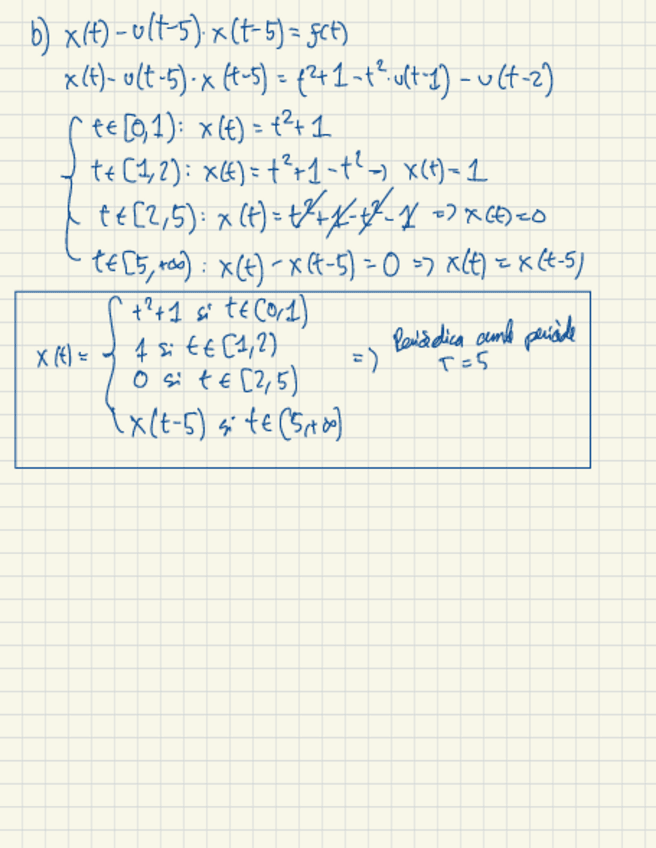 b) x(t) - u(t-5) · x(t-5) = f(t)
x(t) - u(t-5) · x(t-5) = t²+1 - t² · u(t-1) - u(t-2)
t∈[0,1): x(t) = t²+1
t∈[1,2): x(t) = t²+1-t² → x(t) = 1
t∈[2,5): x(t) = t²+1-t²-1 => x(t)=0
t∈[5,+∞): x(t) - x(t-5) = 0 => x(t) = x(t-5)
x(t) = { t²+1 si t∈(0,1)
1 si t∈[1,2)
0 si t∈[2,5)
x(t-5) si t∈(5,+∞)
=> Periòdica amb període
T=5